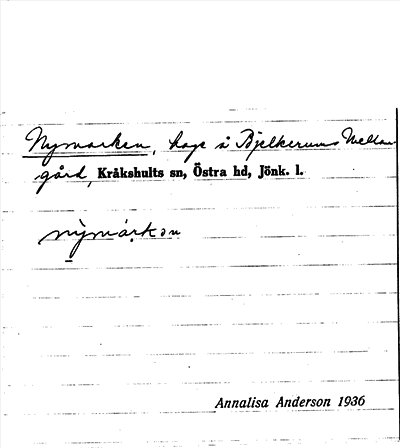 Nymarken, hage å Bjelkerums Mellan-
gård, Kråkshults sn, Östra hd, Jönk. l.
nỳmárkən
Annalisa Anderson 1936